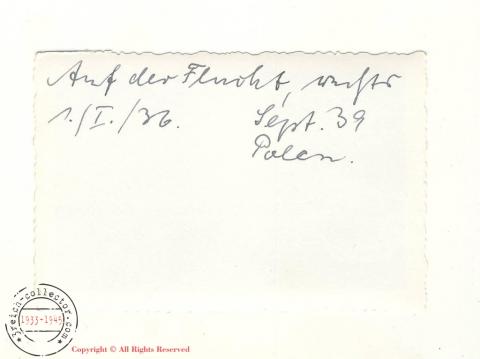 Auf der Flucht, rechts
1./I./36. Sept. 39
Polen.
3reich-collector.com
1933-1945
Copyright © All Rights Reserved